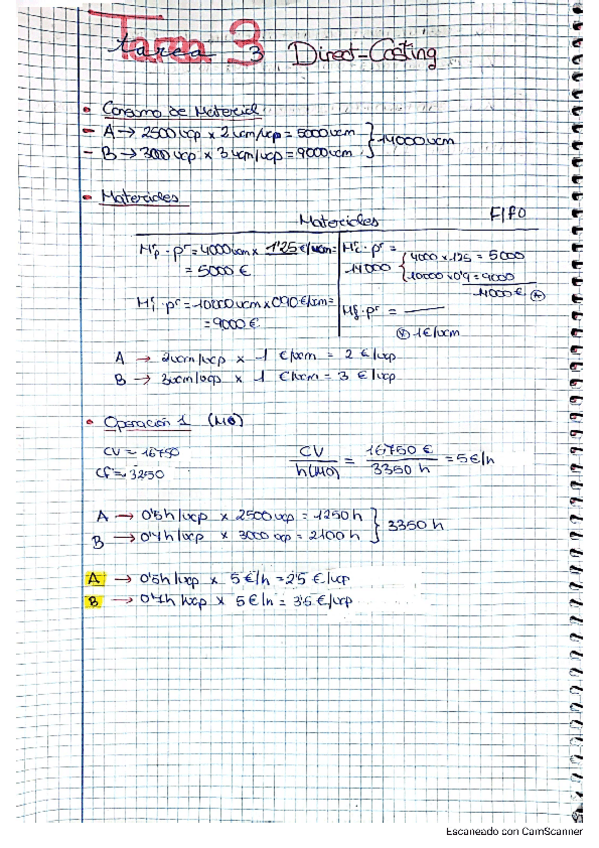 Tarea 3
tarea 3 Direct-Costing
• Consumo de Material
- A → 2500 ucp x 2 ucm/ucp = 5000 ucm } 14000 ucm
- B → 3000 ucp x 3 ucm/ucp = 9000 ucm
• Materiales
Materiales FIFO
= 4000 ucm x 1'25 €/ucm =
= 5000 €
= 10000 ucm x 0'90 €/ucm =
= 9000 €
14000 { 4000 x 1'25 = 5000
10000 x 0'9 = 9000
14000 € *
* 1 €/ucm
A → 2 ucm/ucp x 1 €/ucm = 2 €/ucp
B → 3 ucm/ucp x 1 €/ucm = 3 €/ucp
• Operación 1 (MO)
CV = 16750
CF = 3250
CV / h(MO) = 16750 € / 3350 h = 5 €/h
A → 0'5 h/ucp x 2500 ucp = 1250 h } 3350 h
B → 0'7 h/ucp x 3000 ucp = 2100 h
A → 0'5 h/ucp x 5 €/h = 2'5 €/ucp
B → 0'7 h/ucp x 5 €/h = 3'5 €/ucp
Escaneado con CamScanner